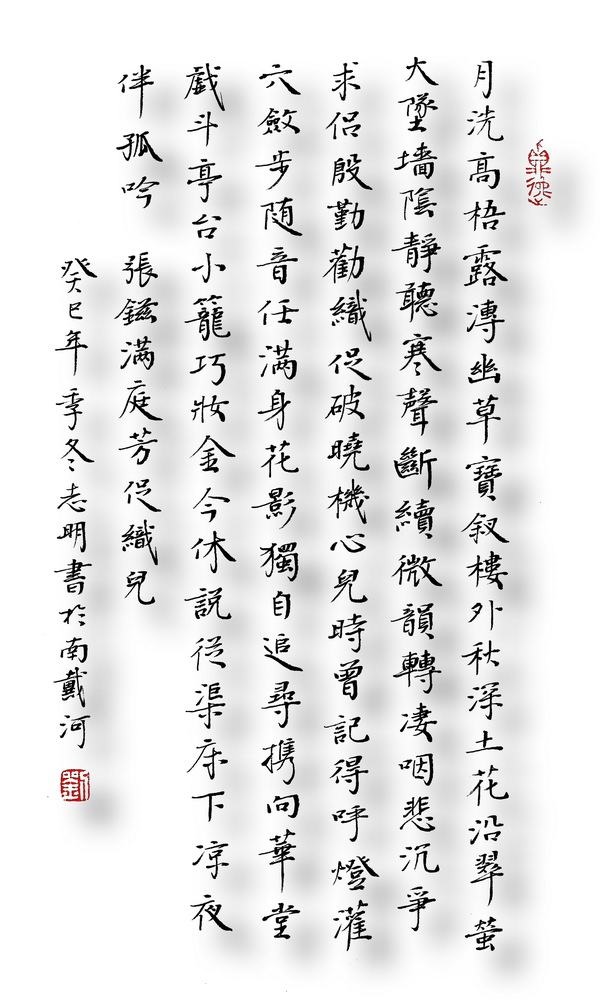 月洗高梧露漙幽草寶釵樓外秋深土花沿翠螢
火墜墻陰靜聽寒聲斷續微韻轉淒咽悲沉爭
求侶殷勤勸織促破曉機心兒時曾記得呼燈灌
穴斂步随音任满身花影獨自追尋携向華堂
戲斗亭台小籠巧妝金今休説從渠床下凉夜
伴孤吟 張鎡满庭芳促織兒
癸巳年季冬志明書於南戴河
劉